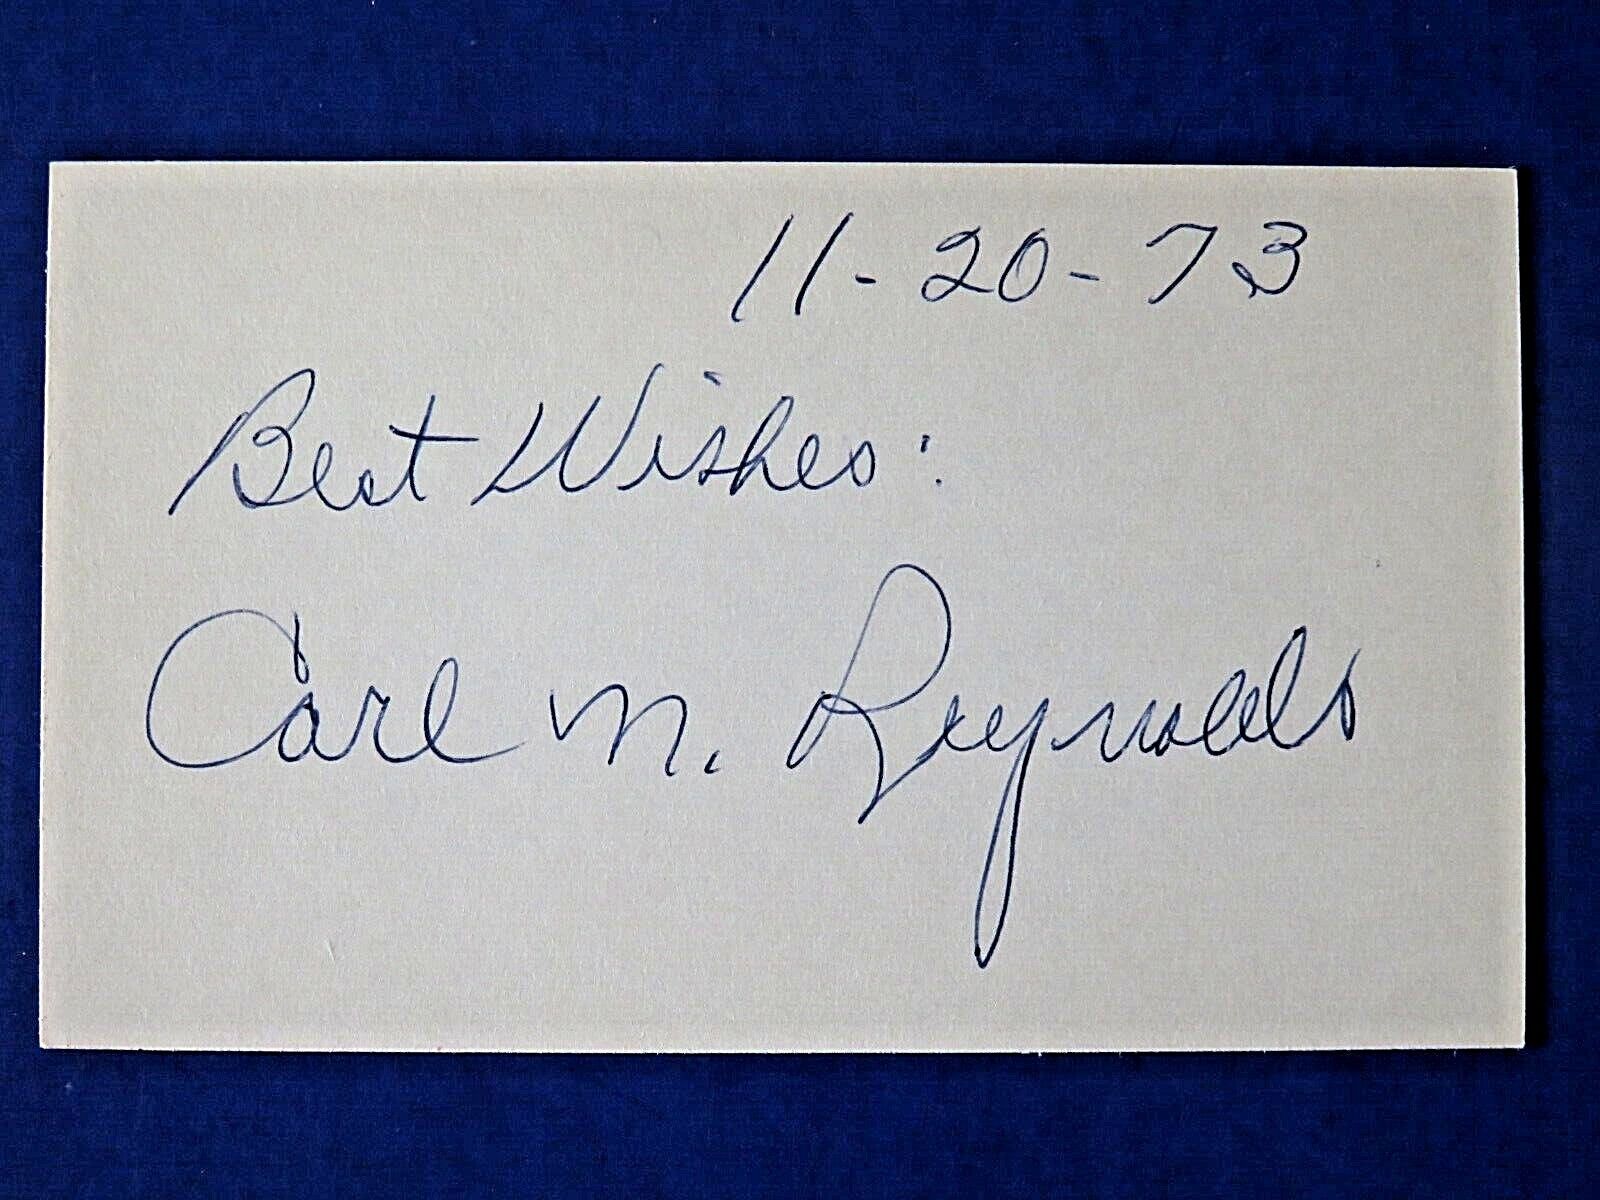 11-20-73
Best Wishes:
Carl N. Reynolds